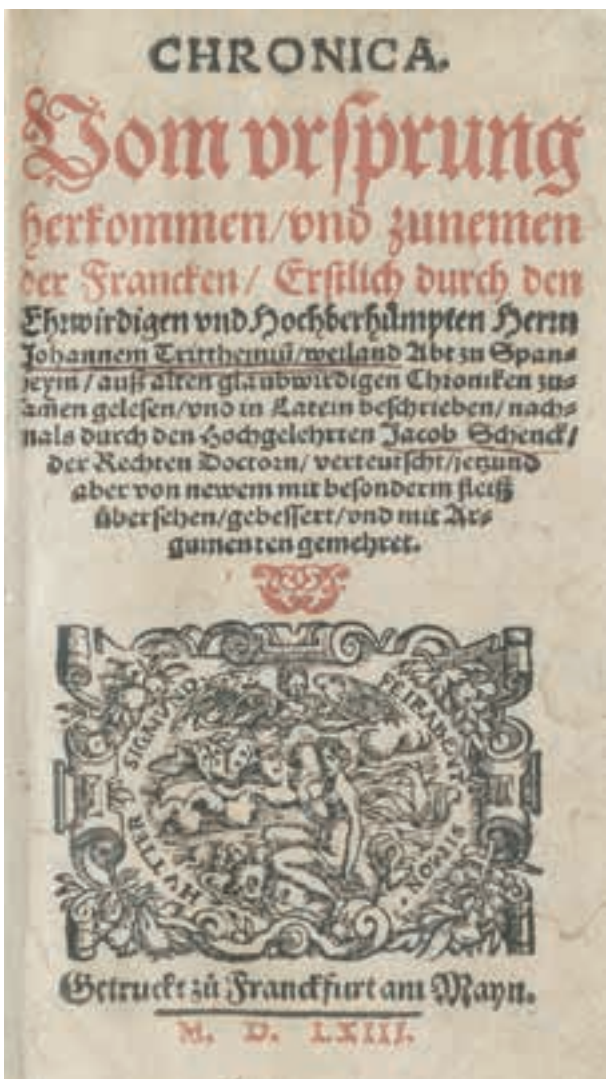 CHRONICA.
Vom vrſprung
herkommen/vnd zunemen
der Francken/ Erſtlich durch den
Ehrwirdigen vnd Hochberhümpten Herrn
Johannem Tritthemiū/weiland Abt zu Span-
heym/auß alten glaubwirdigen Chroniken zu-
samen gelesen/vnd in Latein beschrieben/nach-
mals durch den Hochgelehrten Jacob Schenck/
der Rechten Doctorn/verteutscht/jetzund
aber von newem mit besonderm fleiß
übersehen/gebessert/vnd mit Ar-
gumenten gemehret.
SIGMVND FEIRABENT
SIMON HVTTER
Getruckt zů Franckfurt am Mayn.
M. D. LXIII.